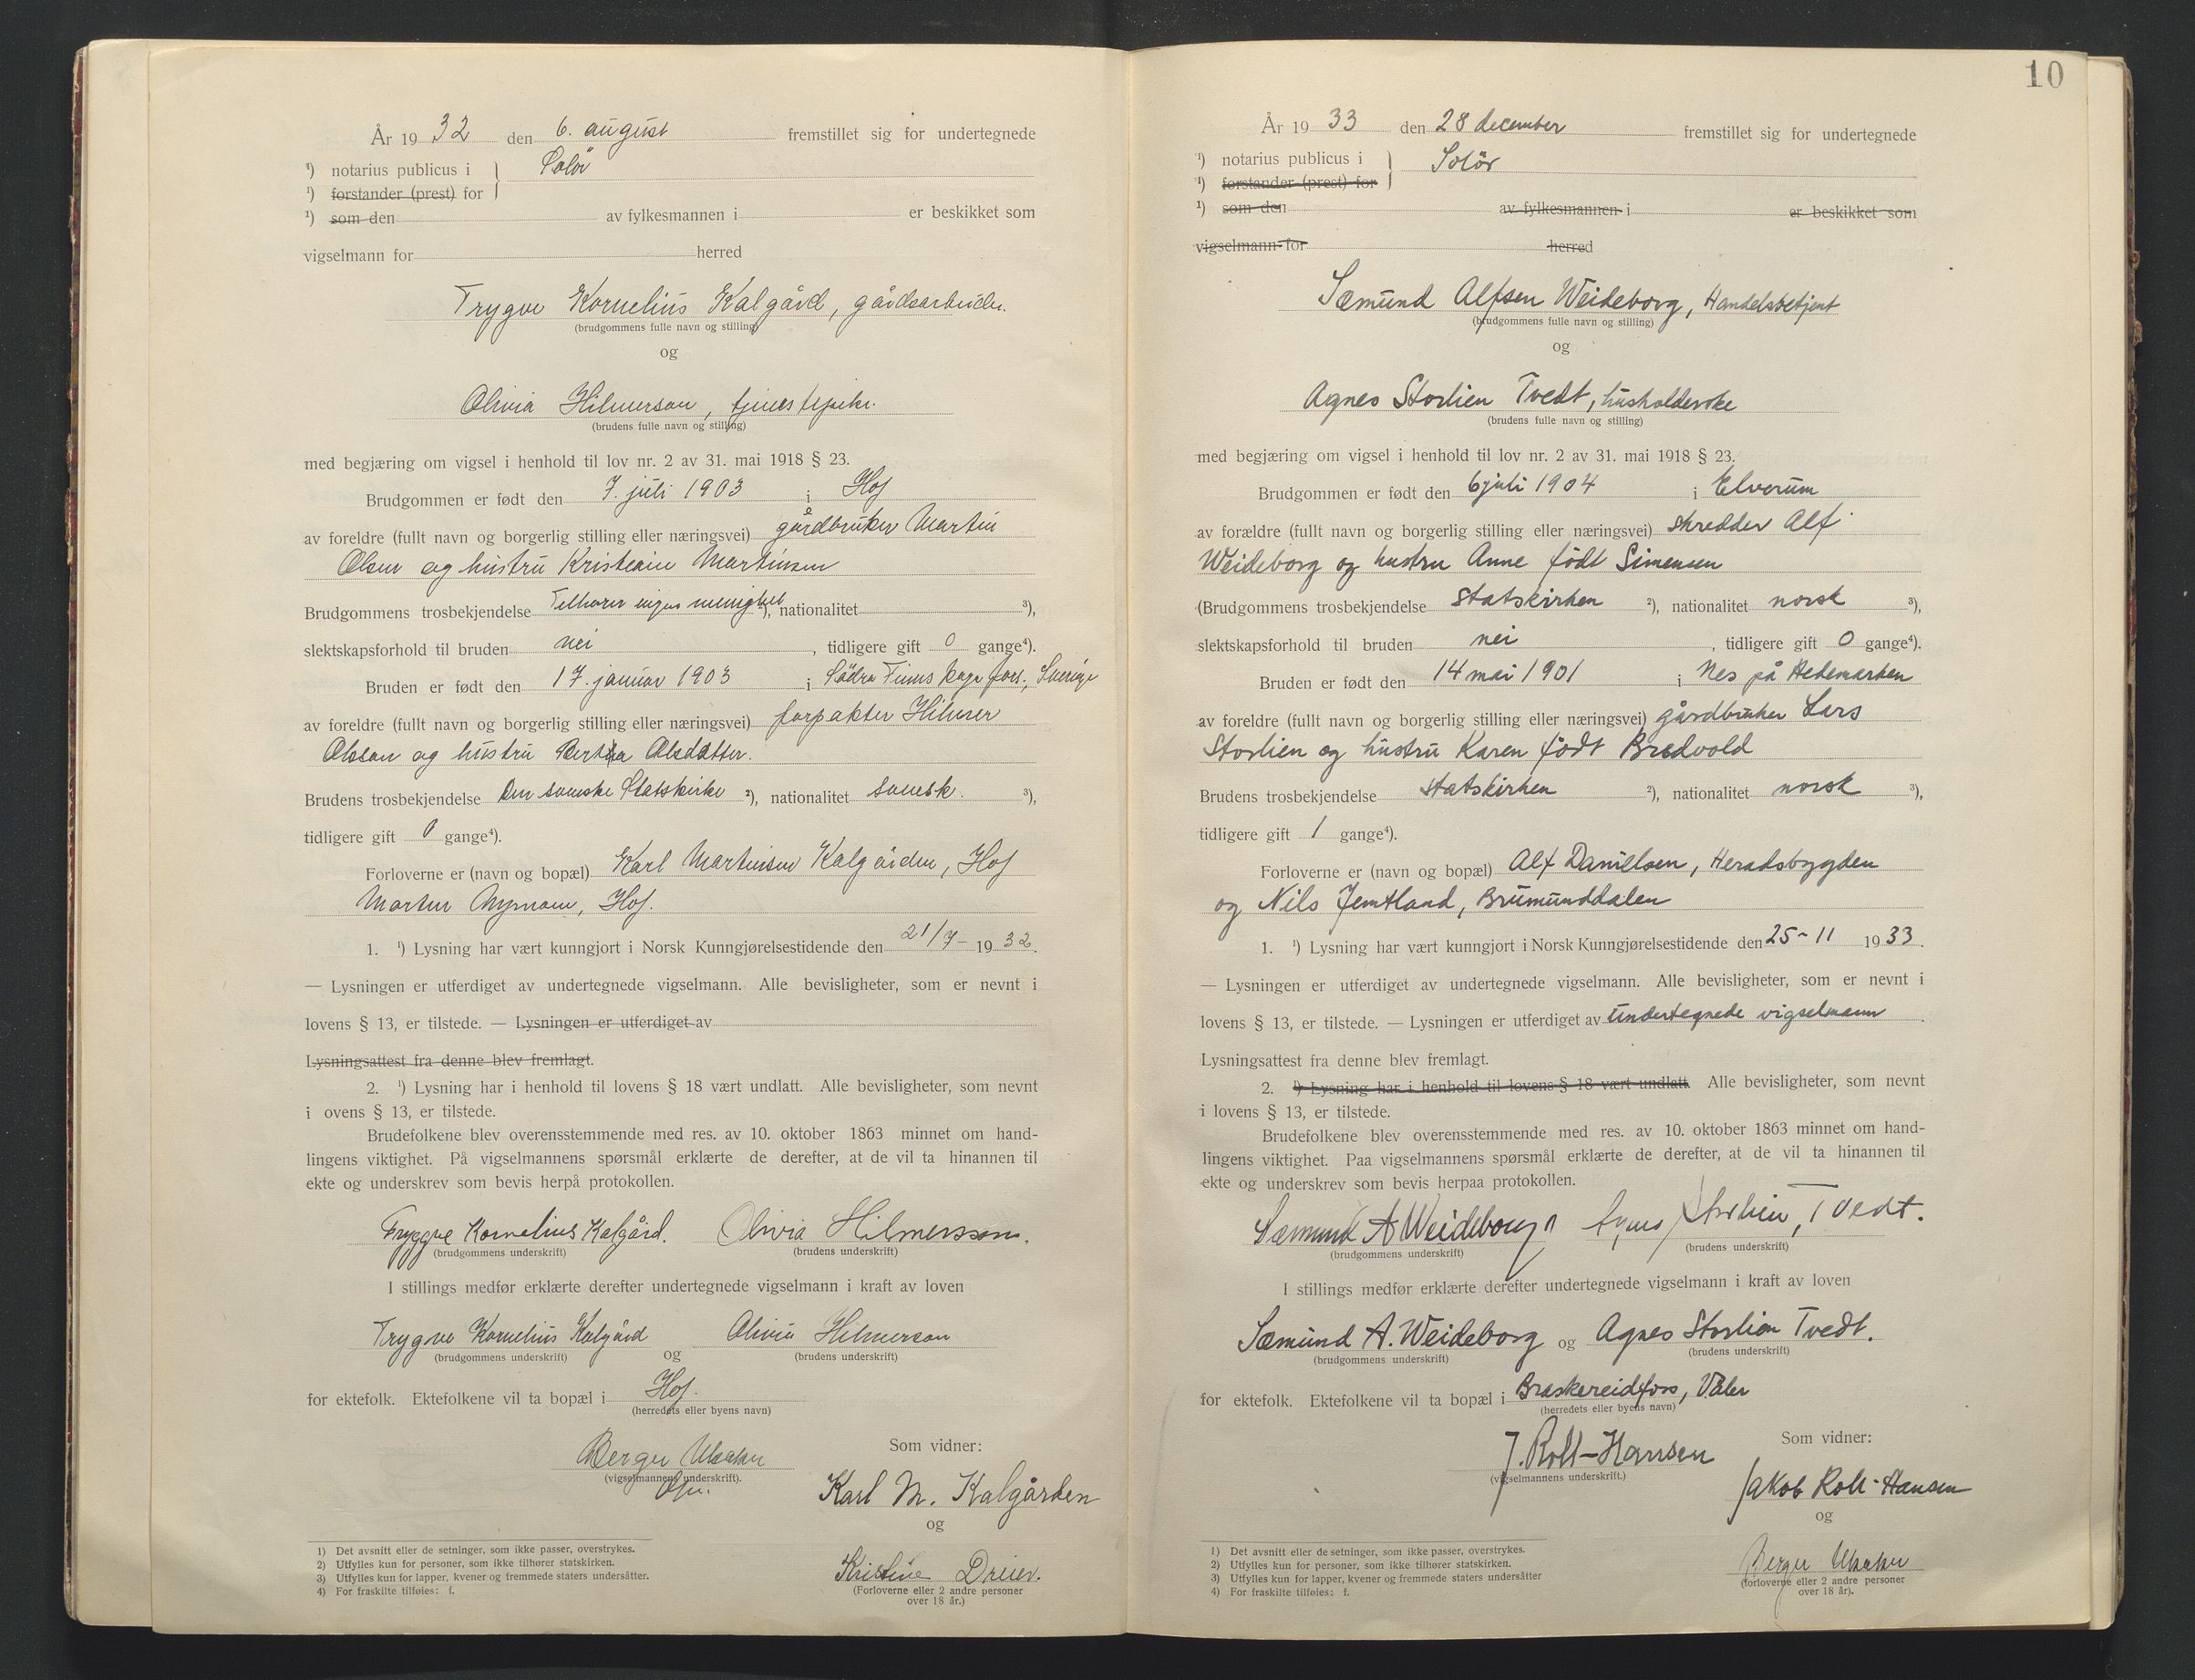 År 19 32 den 6. august fremstillet sig for undertegnede
¹) notarius publicus i } Solör
¹) forstander (prest) for
¹) som den av fylkesmannen i er beskikket som
vigselmann for herred
Trygve Kornelius Kalgård, gårdsarbeider.
(brudgommens fulle navn og stilling)
og
Olivia Hilmerson, tjenestepike.
(brudens fulle navn og stilling)
med begjæring om vigsel i henhold til lov nr. 2 av 31. mai 1918 § 23.
Brudgommen er født den 7. juli 1903 i Hof
av foreldre (fullt navn og borgerlig stilling eller næringsvei) gårdbruker Martin
Olsen og hustru Kristiane Martinsen
Brudgommens trosbekjendelse Tilhører ingen menighet ²), nationalitet ³),
slektskapsforhold til bruden nei, tidligere gift 0 gange⁴).
Bruden er født den 17. januar 1903 i Södra Finnskoga fors., Sverige
av foreldre (fullt navn og borgerlig stilling eller næringsvei) forpakter Hilmer
Olsson og hustru Berta Olsdatter.
Brudens trosbekjendelse Den svenske Statskirke ²), nationalitet svensk. ³),
tidligere gift 0 gange⁴).
Forloverne er (navn og bopæl) Karl Martinsen Kalgården, Hof
Martin Nyman, Hof.
1. ¹) Lysning har vært kunngjort i Norsk Kunngjørelsestidende den 21/7 – 19 32.
— Lysningen er utferdiget av undertegnede vigselmann. Alle bevisligheter, som er nevnt i
lovens § 13, er tilstede. — Lysningen er utferdiget av
Lysningsattest fra denne blev fremlagt.
2. ¹) Lysning har i henhold til lovens § 18 vært undlatt. Alle bevisligheter, som nevnt
i ovens § 13, er tilstede.
Brudefolkene blev overensstemmende med res. av 10. oktober 1863 minnet om hand-
lingens viktighet. På vigselmannens spørsmål erklærte de derefter, at de vil ta hinannen til
ekte og underskrev som bevis herpå protokollen.
Trygve Kornelius Kalgård. Olivia Hilmersson.
(brudgommens underskrift) (brudens underskrift)
I stillings medfør erklærte derefter undertegnede vigselmann i kraft av loven
Trygve Kornelius Kalgård og Olivia Hilmerson
(brudgommens underskrift) (brudens underskrift)
for ektefolk. Ektefolkene vil ta bopæl i Hof.
(herredets eller byens navn)
Berger
(vigselmannens underskrift).
Som vidner:
Karl M. Kalgården
og
Kristine Dreier.
(Forloverne eller 2 andre personer
over 18 år.)
1) Det avsnitt eller de setninger, som ikke passer, overstrykes.
2) Utfylles kun for personer, som ikke tilhører statskirken.
3) Utfylles kun for lapper, kvener og fremmede staters undersåtter.
4) For fraskilte tilføies: f.
10
År 19 33 den 28 december fremstillet sig for undertegnede
¹) notarius publicus i } Solör
¹) forstander (prest) for
¹) som den av fylkesmannen i er beskikket som
vigselmann for herred
Sæmund Alfsen Weideborg, Handelsbetjent
(brudgommens fulle navn og stilling)
og
Agnes Storlien Tvedt, husholderske
(brudens fulle navn og stilling)
med begjæring om vigsel i henhold til lov nr. 2 av 31. mai 1918 § 23.
Brudgommen er født den 6 juli 1904 i Elverum
av forældre (fullt navn og borgerlig stilling eller næringsvei) skredder Alf
Weideborg og hustru Anne født Simensen
(Brudgommens trosbekjendelse Statskirken ²), nationalitet norsk ³),
slektskapsforhold til bruden nei, tidligere gift 0 gange⁴).
Bruden er født den 14 mai 1901 i Nes på Hedemarken
av foreldre (fullt navn og borgerlig stilling eller næringsvei) gårdbruker Lars
Storlien og hustru Karen født Bredvold
Brudens trosbekjendelse Statskirken ²), nationalitet norsk ³),
tidligere gift 1 gange⁴).
Forloverne er (navn og bopæl) Alf Danielsen, Heradsbygden
og Nils Jemtland, Brumunddalen
1. ¹) Lysning har vært kunngjort i Norsk Kunngjørelsestidende den 25-11 19 33.
— Lysningen er utferdiget av undertegnede vigselmann. Alle bevisligheter, som er nevnt i
lovens § 13, er tilstede. — Lysningen er utferdiget av undertegnede vigselmann.
Lysningsattest fra denne blev fremlagt.
2. ¹) Lysning har i henhold til lovens § 18 vært undlatt. Alle bevisligheter, som nevnt
i lovens § 13, er tilstede.
Brudefolkene blev overensstemmende med res. av 10. oktober 1863 minnet om hand-
lingens viktighet. Paa vigselmannens spørsmål erklærte de derefter, at de vil ta hinannen til
ekte og underskrev som bevis herpaa protokollen.
Sæmund A Weideborg Agnes Storlien Tvedt.
(brudgommens underskrift) (brudens underskrift)
I stillings medfør erklærte derefter undertegnede vigselmann i kraft av loven
Sæmund A. Weideborg og Agnes Storlien Tvedt.
(brudgommens underskrift) (brudens underskrift)
for ektefolk. Ektefolkene vil ta bopæl i Braskereidfoss, Våler
(herredets eller byens navn)
J. Roll-Hansen
(vigselmannens underskrift.)
Som vidner:
Jakob Roll-Hansen
og
Berger
(forloverne eller 2 andre personer
over 18 år).
1) Det avsnitt eller de setninger, som ikke passer, overstrykes.
2) Utfylles kun for personer, som ikke tilhører statskirken.
3) Utfylles kun for lapper, kvener og fremmede staters undersåtter
4) For fraskilte tilføies: f.